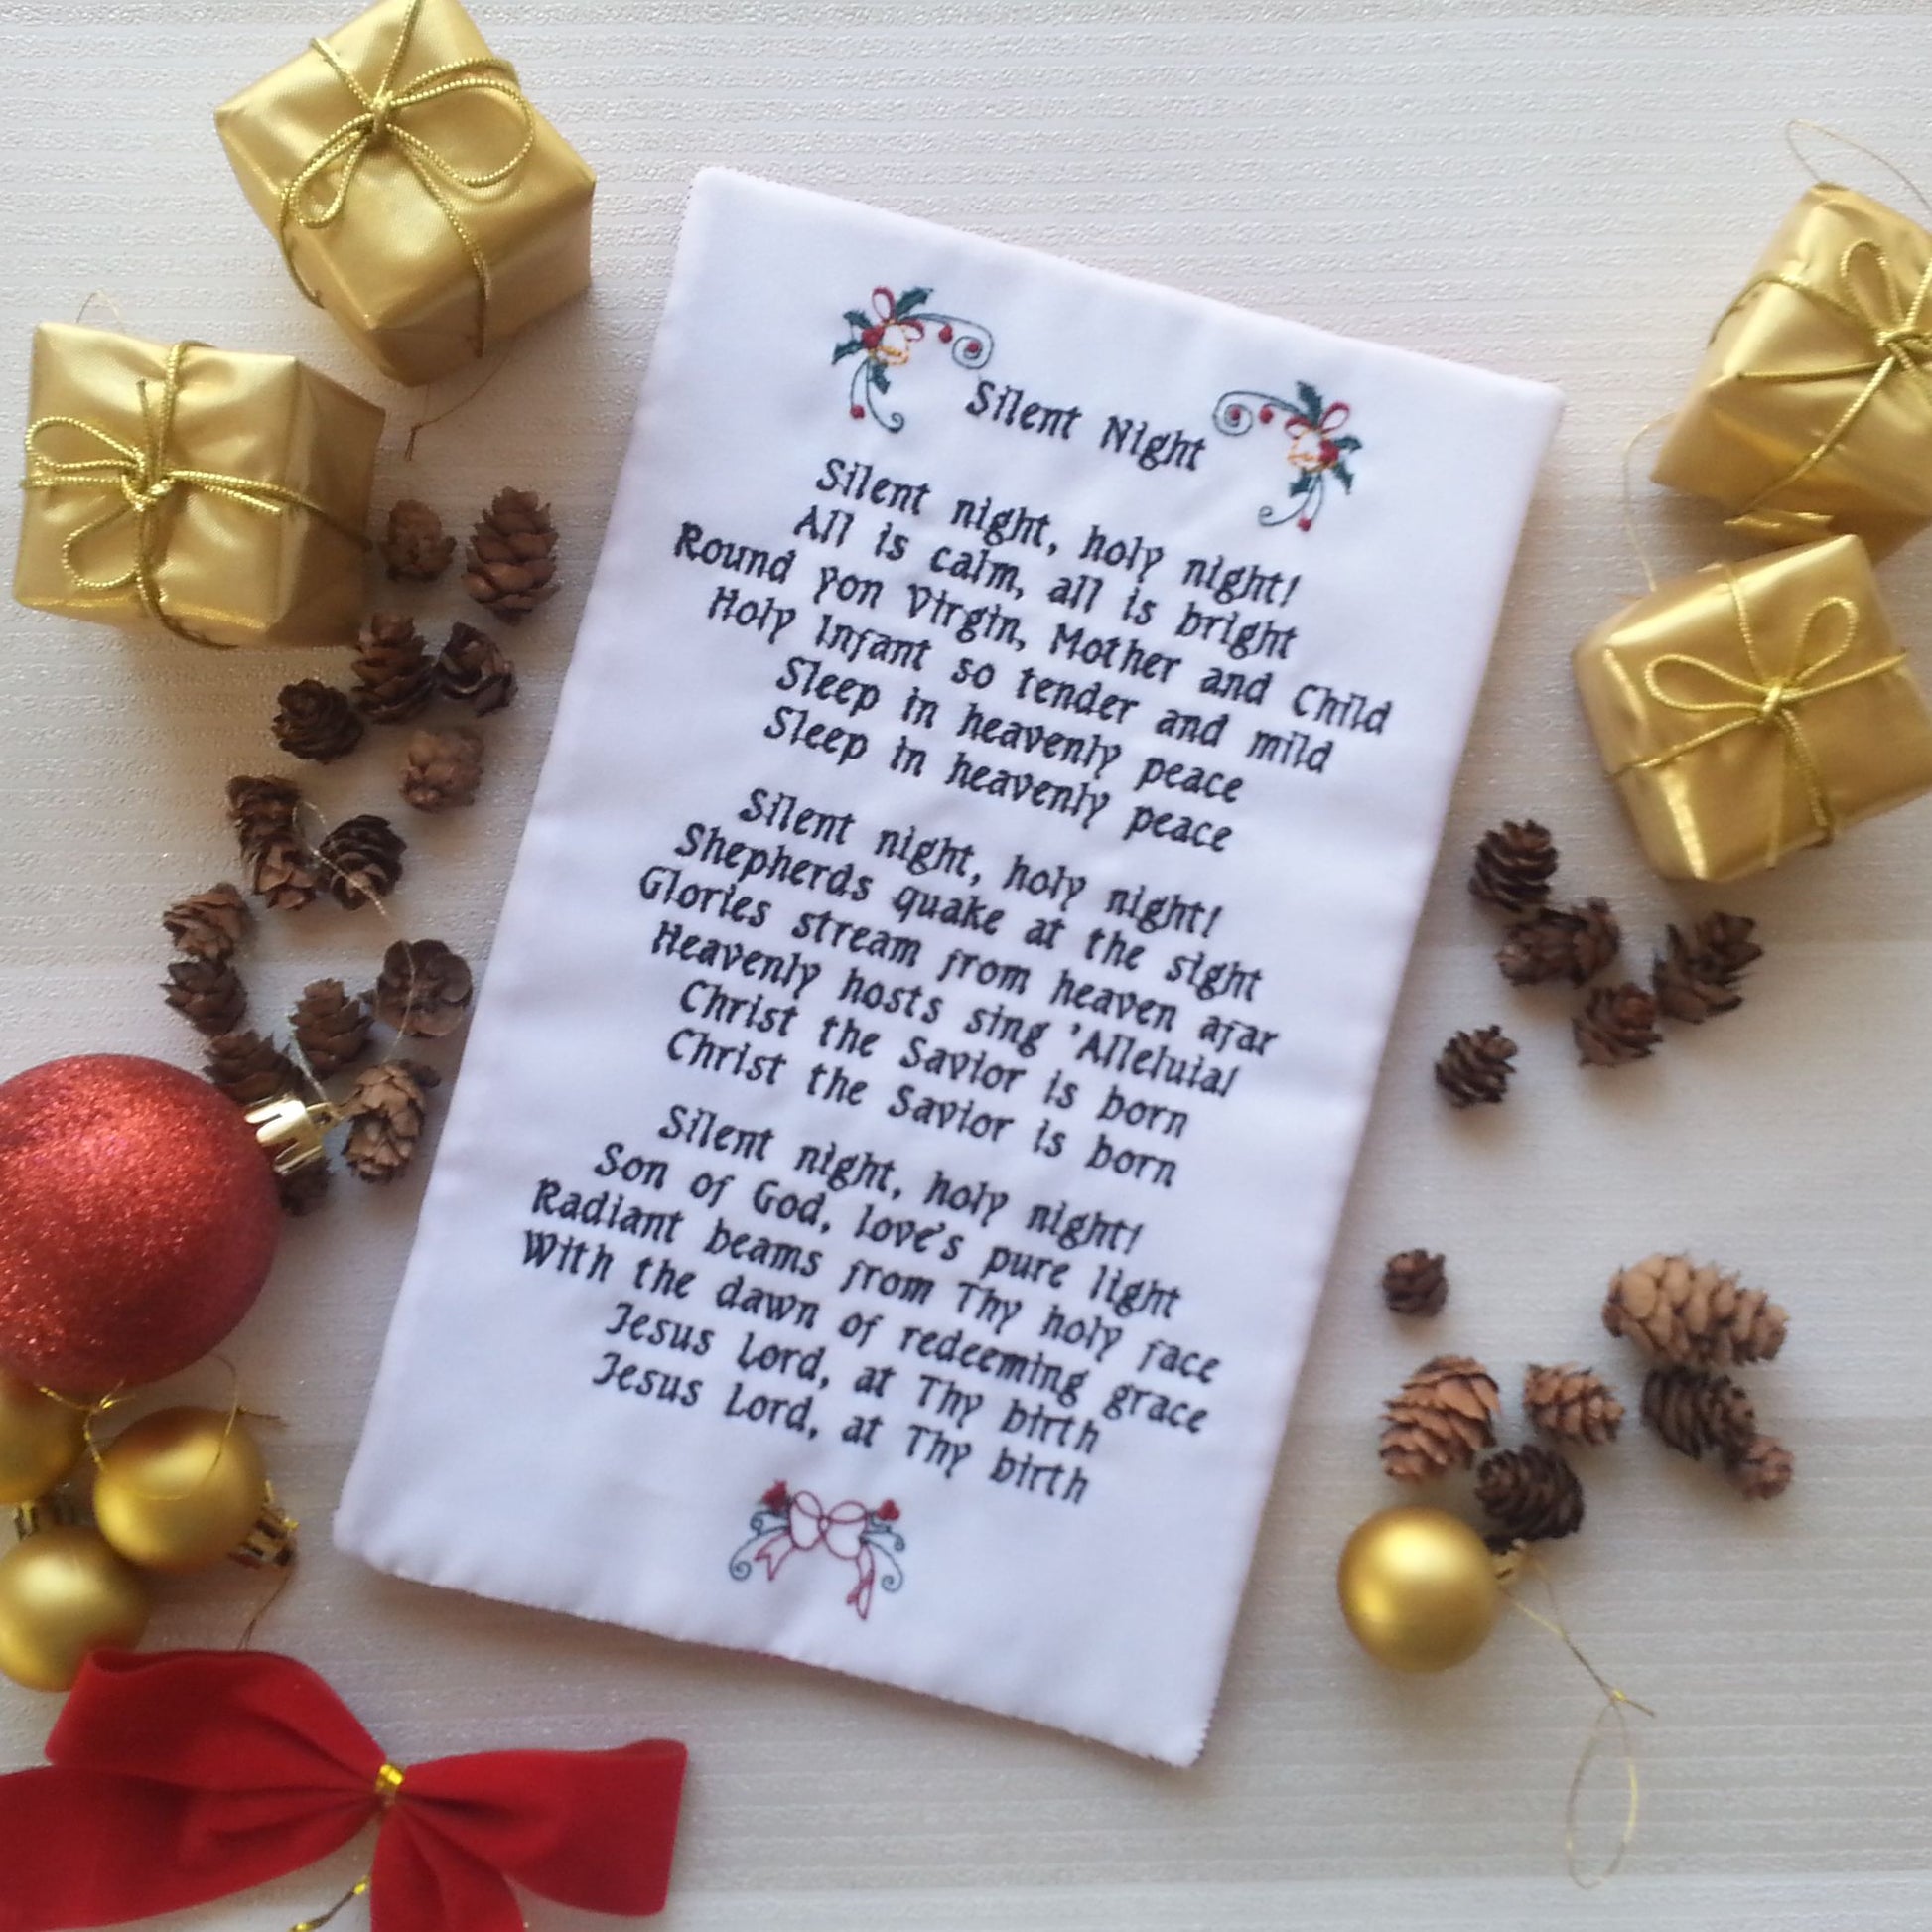 Silent Night
Silent night, holy night!
All is calm, all is bright
Round yon Virgin, Mother and Child
Holy Infant so tender and mild
Sleep in heavenly peace
Sleep in heavenly peace
Silent night, holy night!
Shepherds quake at the sight
Glories stream from heaven afar
Heavenly hosts sing 'Alleluia!
Christ the Savior is born
Christ the Savior is born
Silent night, holy night!
Son of God, love's pure light
Radiant beams from Thy holy face
With the dawn of redeeming grace
Jesus Lord, at Thy birth
Jesus Lord, at Thy birth